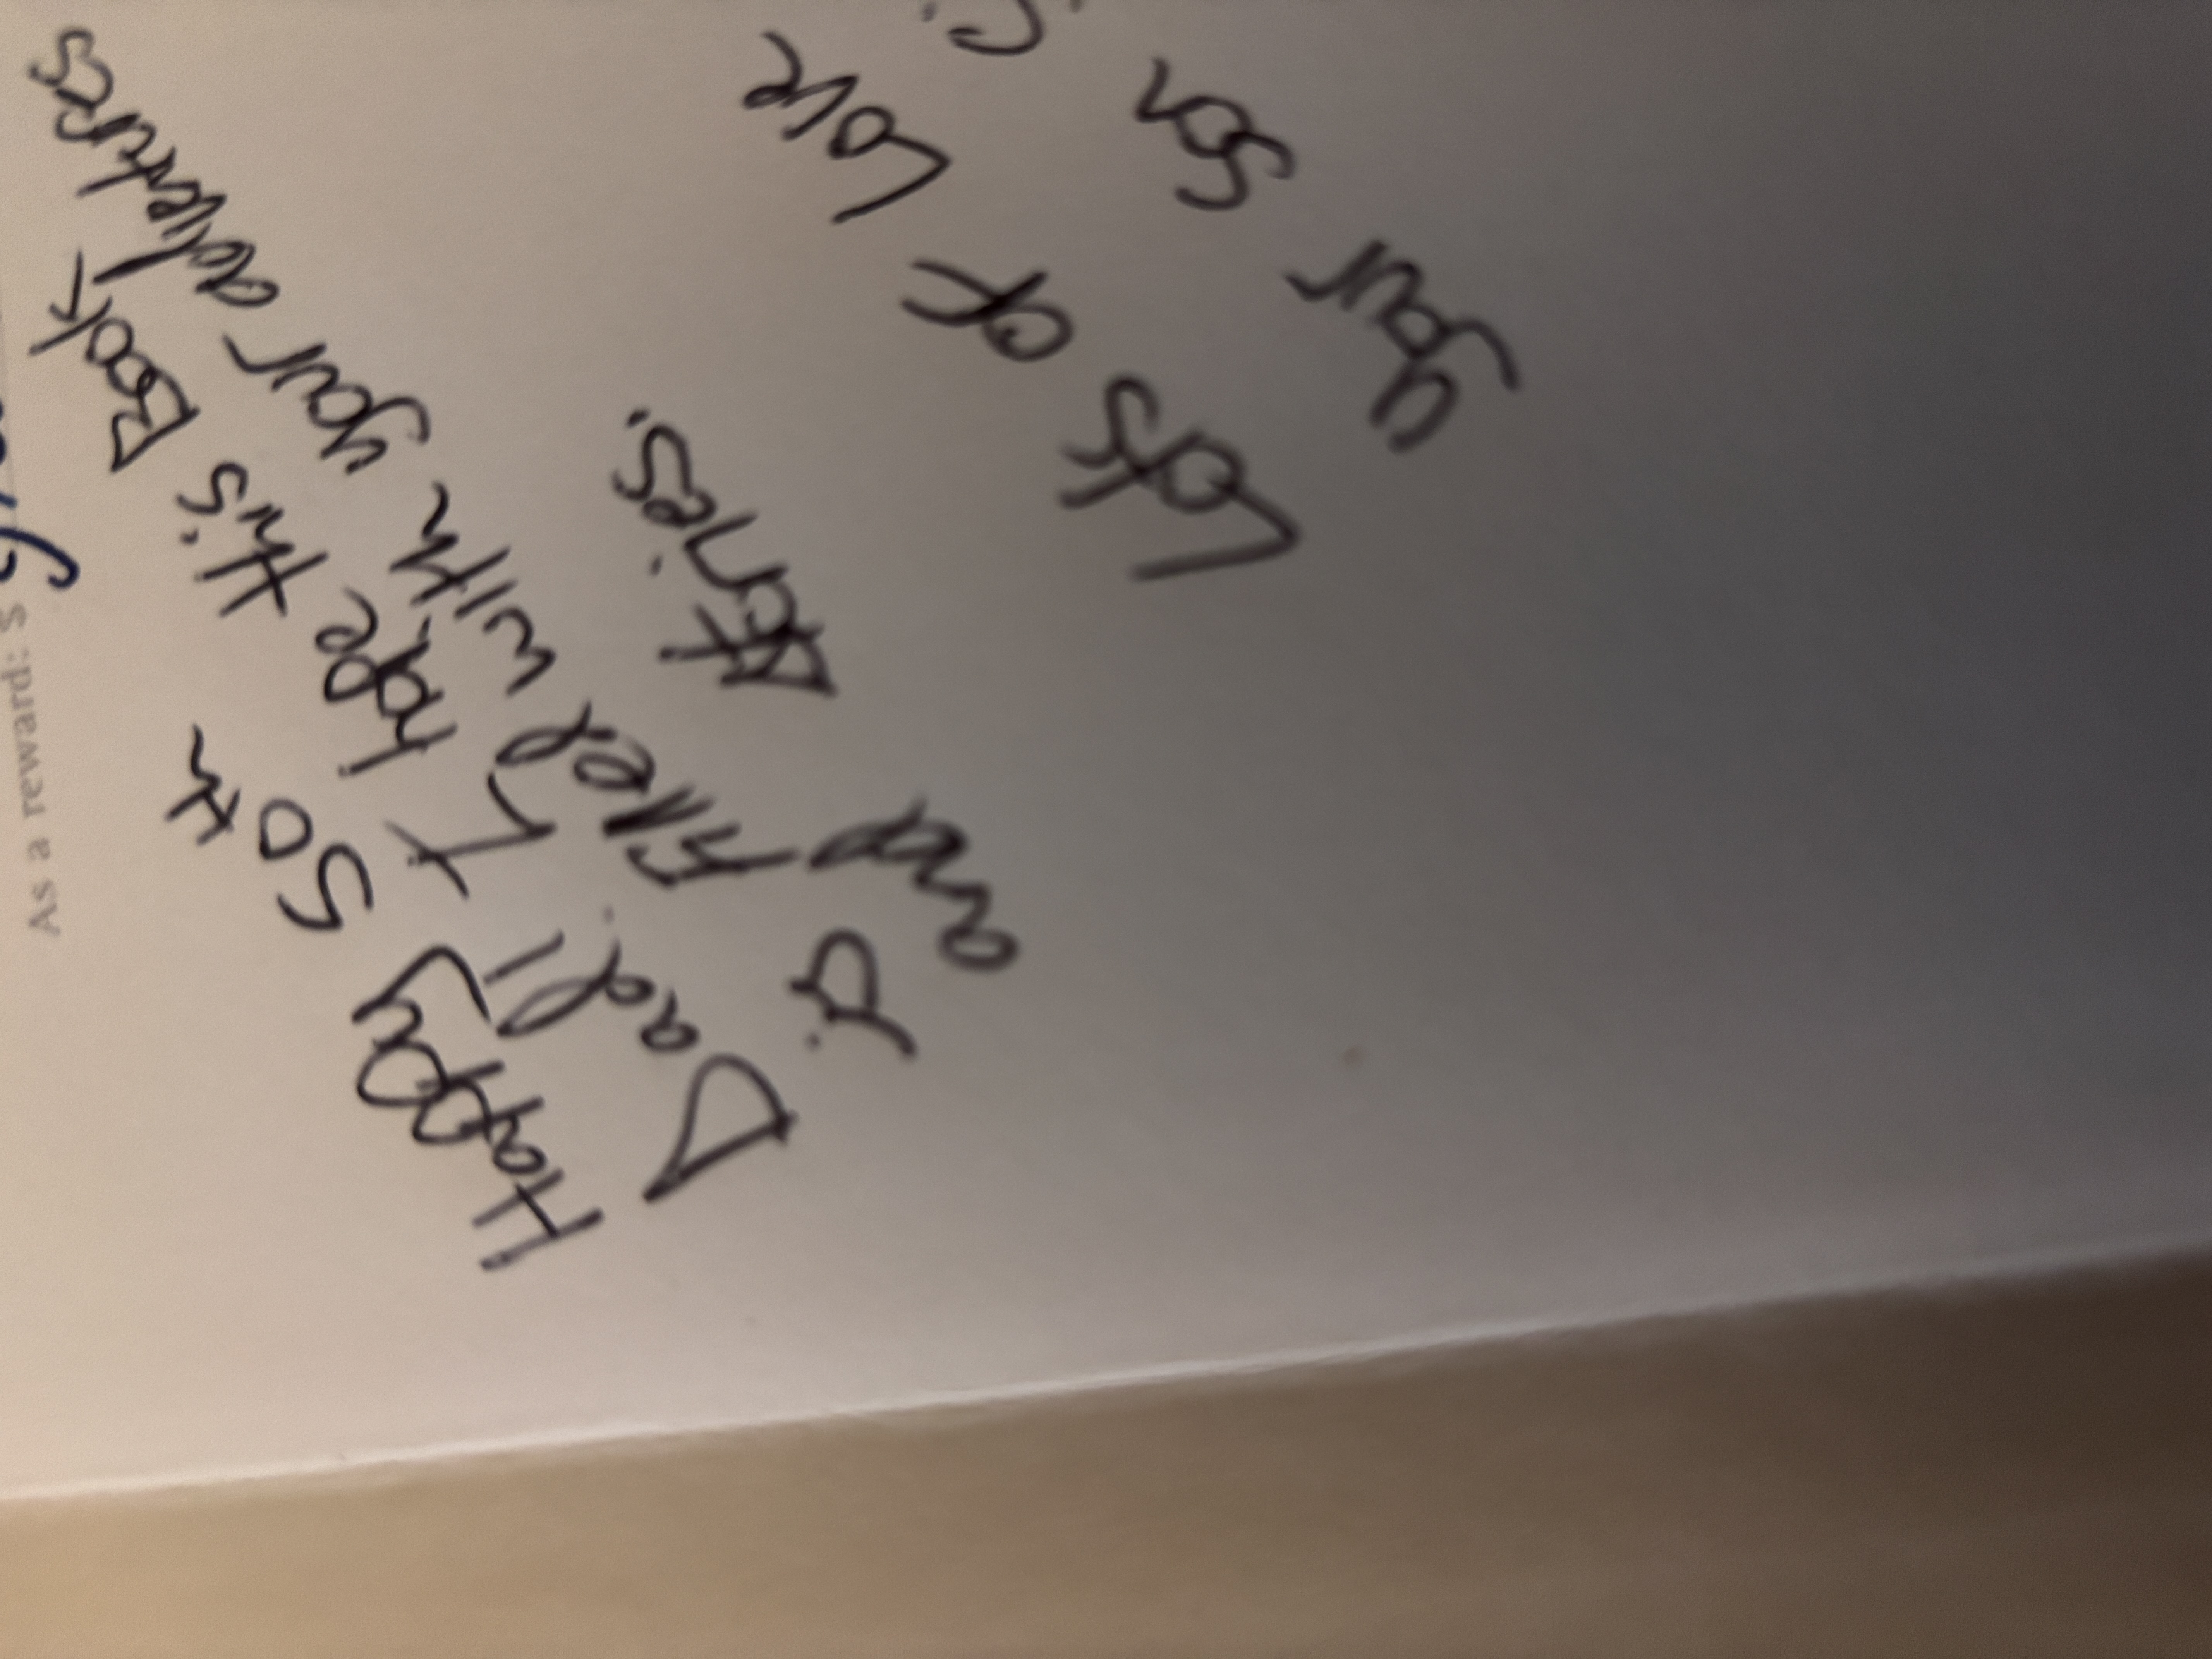 Happy 50th
Dad! I hope this Book
is filled with your adventures
and stories.
Lots of Love
Your Son
As a reward: s